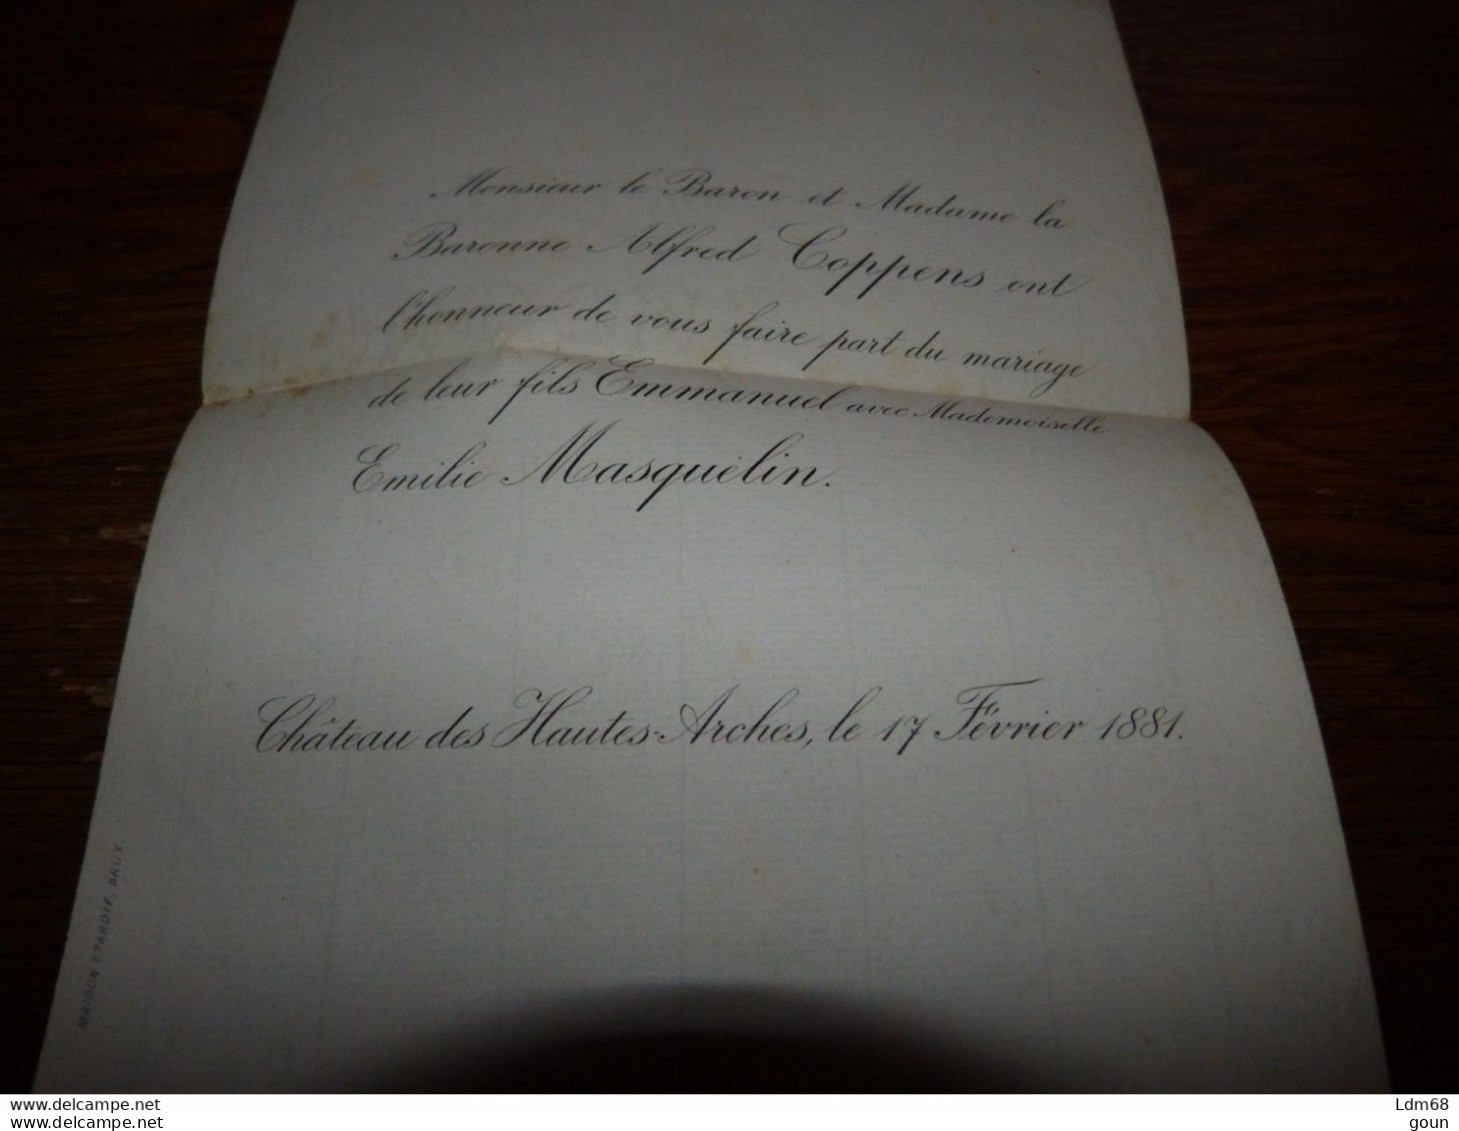 Monsieur le Baron et Madame la
Baronne Alfred Coppens ont
l'honneur de vous faire part du mariage
de leur fils Emmanuel avec Mademoiselle
Emilie Masquelin.
Château des Hautes-Arches, le 17 Février 1881.
MAISON ETARDIF, BRUX
www.delcampe.net
www.delcampe.net
Ldm68
goun